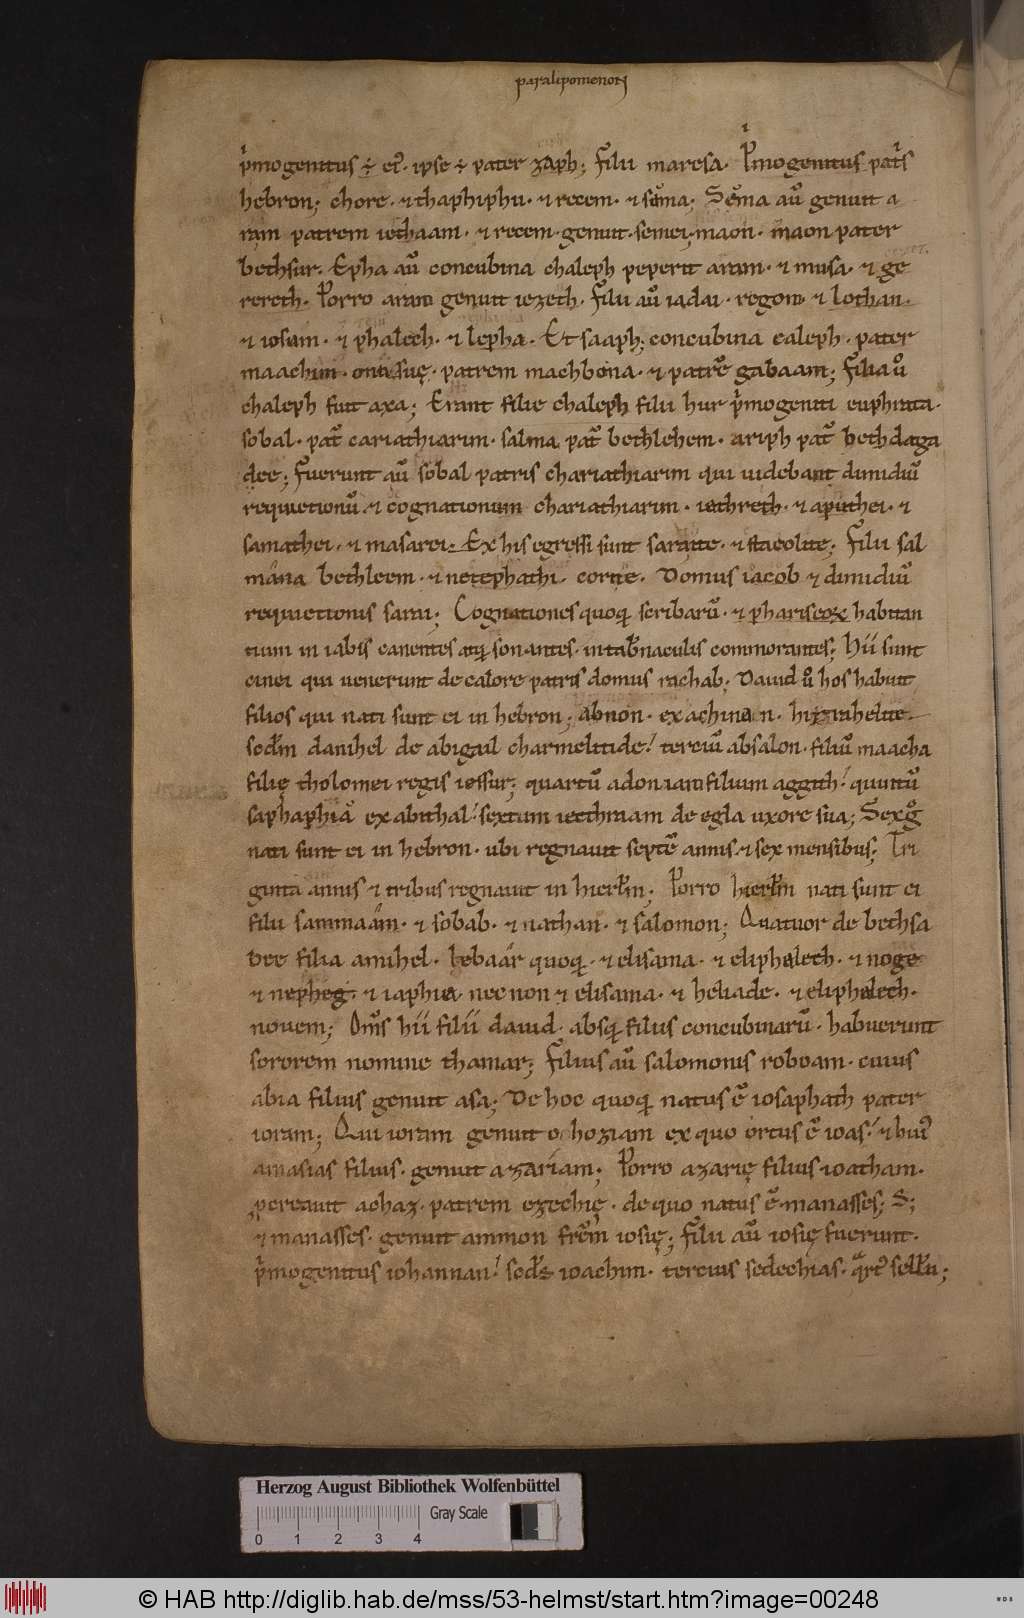 paralipomenon
p͛mogenitus ÷ ei᷒· ipse ÷ pater zaph; Filii maresa· P͛mogenitus pat͛s
hebron; chore· ⁊ thaphiphu· ⁊ recem· ⁊ sema; Sema aū genuit a
ram patrem iethaam· ⁊ recem· genuit· semei· maon· maon pater
bethsur· Epha aū concubina chaleph peperit aram· ⁊ musa· ⁊ ge
rereth· Porro aram genuit iezeth· Filii aū iadai· regom ⁊ lothan·
⁊ iosam· ⁊ phalech· ⁊ lepha· Et saaph; concubina caleph· pater
maachim· suę· patrem machbena· ⁊ patrē gabaam; Filia u͛o
chaleph fuit axa; Erant filie chaleph filii hur p͛mogeniti euphrata·
sobal· pat͛ cariathiarim· salma pat͛ bethlehem· ariph pat͛ bethdaga
dee; Fuerunt aū sobal patris chariathiarim qui uidebant dimidiū
requietionū· ⁊ cognationum chariathiarim· iethreth· ⁊ aputhei· ⁊
samathei· ⁊ masarei· Ex his egressi sunt saraite· ⁊ staeolite; Filii sal
mána bethleem· ⁊ netephathi· corne· Domus iacob ⁊ dimidiū
requietionis sarai; Cognationes quoq; scribarū· ⁊ phariseoꝝ habitan
tium in iabis canentes atq; sonantes· in tab͛naculis commorantes; Hii sunt
cinei qui uenerunt de calore patris domus rachab; Dauid u͛o hos habuit
filios qui nati sunt ei in hebron; abnon· ex achinaen· hizrahelite·
sed͛m danihel de abigail charmelitide! terciū absalon· filiū maacha
filię tholomei regis iessur; quartū adoniam filium aggith! quintū
saphaphiā ex abithal! sextum iethraam de egla uxore sua; Sex g͛o
nati sunt ei in hebron· ubi regnauit septē annis· ⁊ sex mensibus; Tri
ginta annis ⁊ tribus regnauit in hierl͛m; Porro hierl͛m nati sunt ei
filii sammaám· ⁊ sobab· ⁊ nathan· ⁊ salomon; Quatuor de bethsa
bee filia amihel· Iebaár quoq;· ⁊ elisama· ⁊ eliphalech· ⁊ noge
⁊ nepheg· ⁊ iaphia· nec non ⁊ elisama· ⁊ heliade· ⁊ eliphalech·
nouem; Om̅s hii filii dauid· absq; filiis concubinarū· habuerunt
sororem nomine thamar; Filius aū salomonis roboam· cuius
abia filius genuit asa; De hoc quoq; natus ē iosaphath pater
ioram; Qui ioram genuit ochoziam ex quo ortus ē ioas! ⁊ hui᷒
amasias filius· genuit azariam; Porro azarię filius ioatham·
pereauit achaz· patrem ezechię· de quo natus ē· manasses; S;
⁊ manasses· genuit ammon fr͛em iosię; filii aū iosię fuerunt·
p͛mogenitus iohannan! sed͛s ioachim· tercius sedechias· q͛rt᷒ sell͛u;
Herzog August Bibliothek Wolfenbüttel
Gray Scale
0 1 2 3 4
© HAB http://diglib.hab.de/mss/53-helmst/start.htm?image=00248